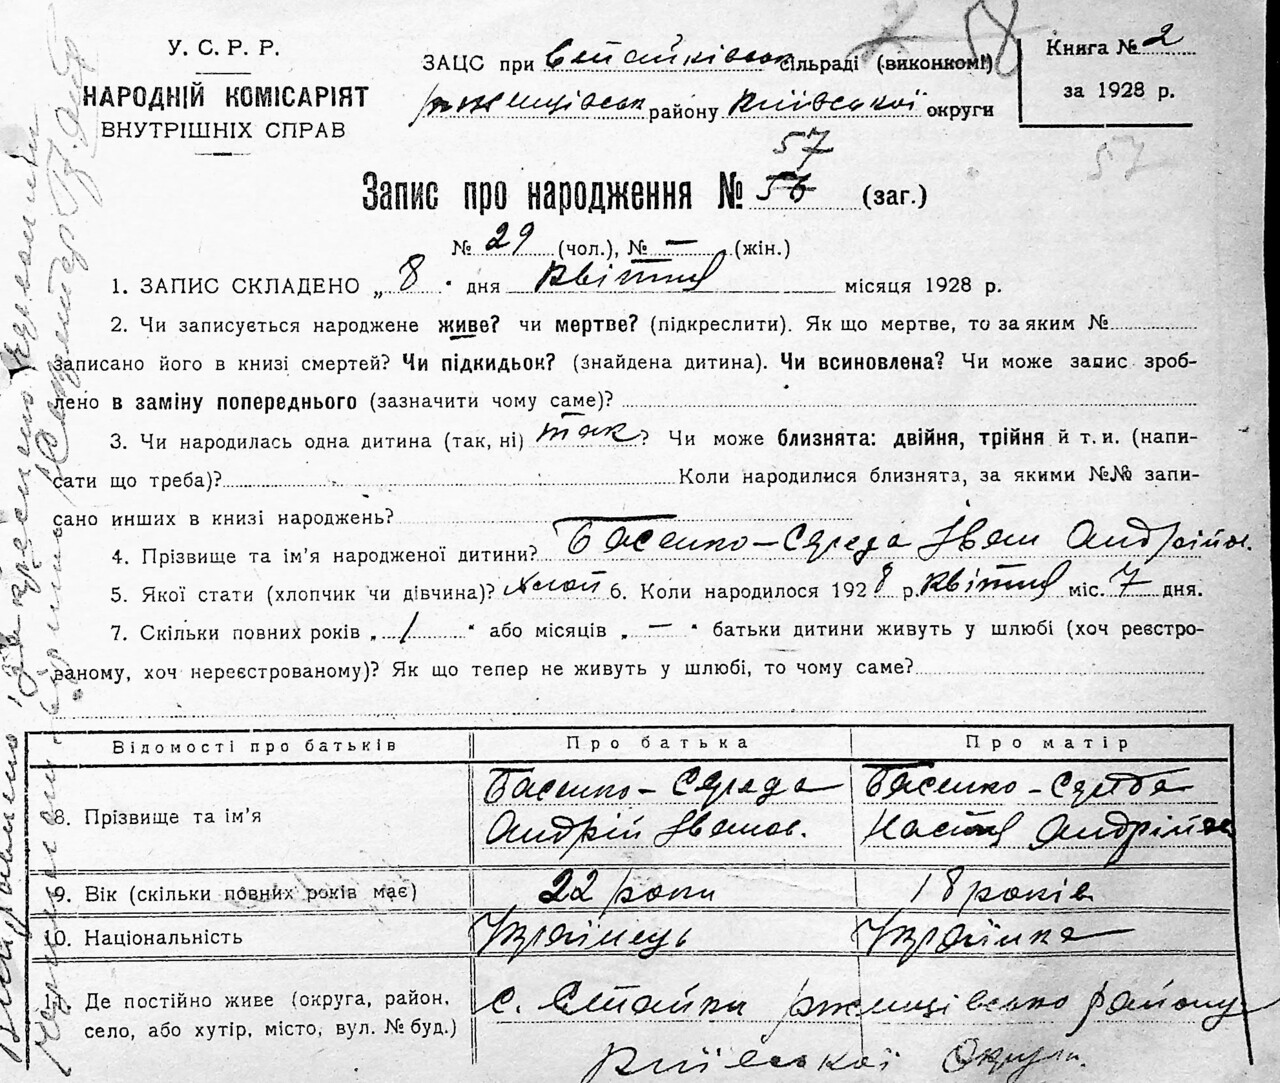 У. С. Р. Р.
НАРОДНІЙ КОМІСАРІЯТ
ВНУТРІШНІХ СПРАВ
58
ЗАЦС при Стайківськ сільраді (виконкомі)
ржищівськ району Київської округи
Книга № 2
за 1928 р.
57
57
Запис про народження № 56 (заг.)
№ 29 (чол.), № — (жін.)
1. ЗАПИС СКЛАДЕНО „ 8 " дня квітня місяця 1928 р.
2. Чи записується народжене живе? чи мертве? (підкреслити). Як що мертве, то за яким №
записано його в книзі смертей? Чи підкидьок? (знайдена дитина). Чи всиновлена? Чи може запис зроб-
лено в заміну попереднього (зазначити чому саме)?
3. Чи народилась одна дитина (так, ні) так? Чи може близнята: двійня, трійня й т. и. (напи-
сати що треба)? Коли народилися близнята, за якими №№ запи-
сано инших в книзі народжень?
4. Прізвище та ім'я народженої дитини? Басенко-Середа Іван Андрійов.
5. Якої стати (хлопчик чи дівчина)? хлоп 6. Коли народилося 1928 р. квітня міс. 7 дня.
7. Скільки повних років „ 1 " або місяців „ — " батьки дитини живуть у шлюбі (хоч реєстро-
ваному, хоч нереєстрованому)? Як що тепер не живуть у шлюбі, то чому саме?
Відомості про батьків Про батька Про матір
8. Прізвище та ім'я
Басенко-Середа Басенко-Середа
Андрій Іванов. Настя Андрійов
9. Вік (скільки повних років має) 22 роки 18 років
10. Національність Українець Українка
11. Де постійно живе (округа, район, село, або хутір, місто, вул. № буд.)
с. Стайки ржищівсько району
Київської Округи.